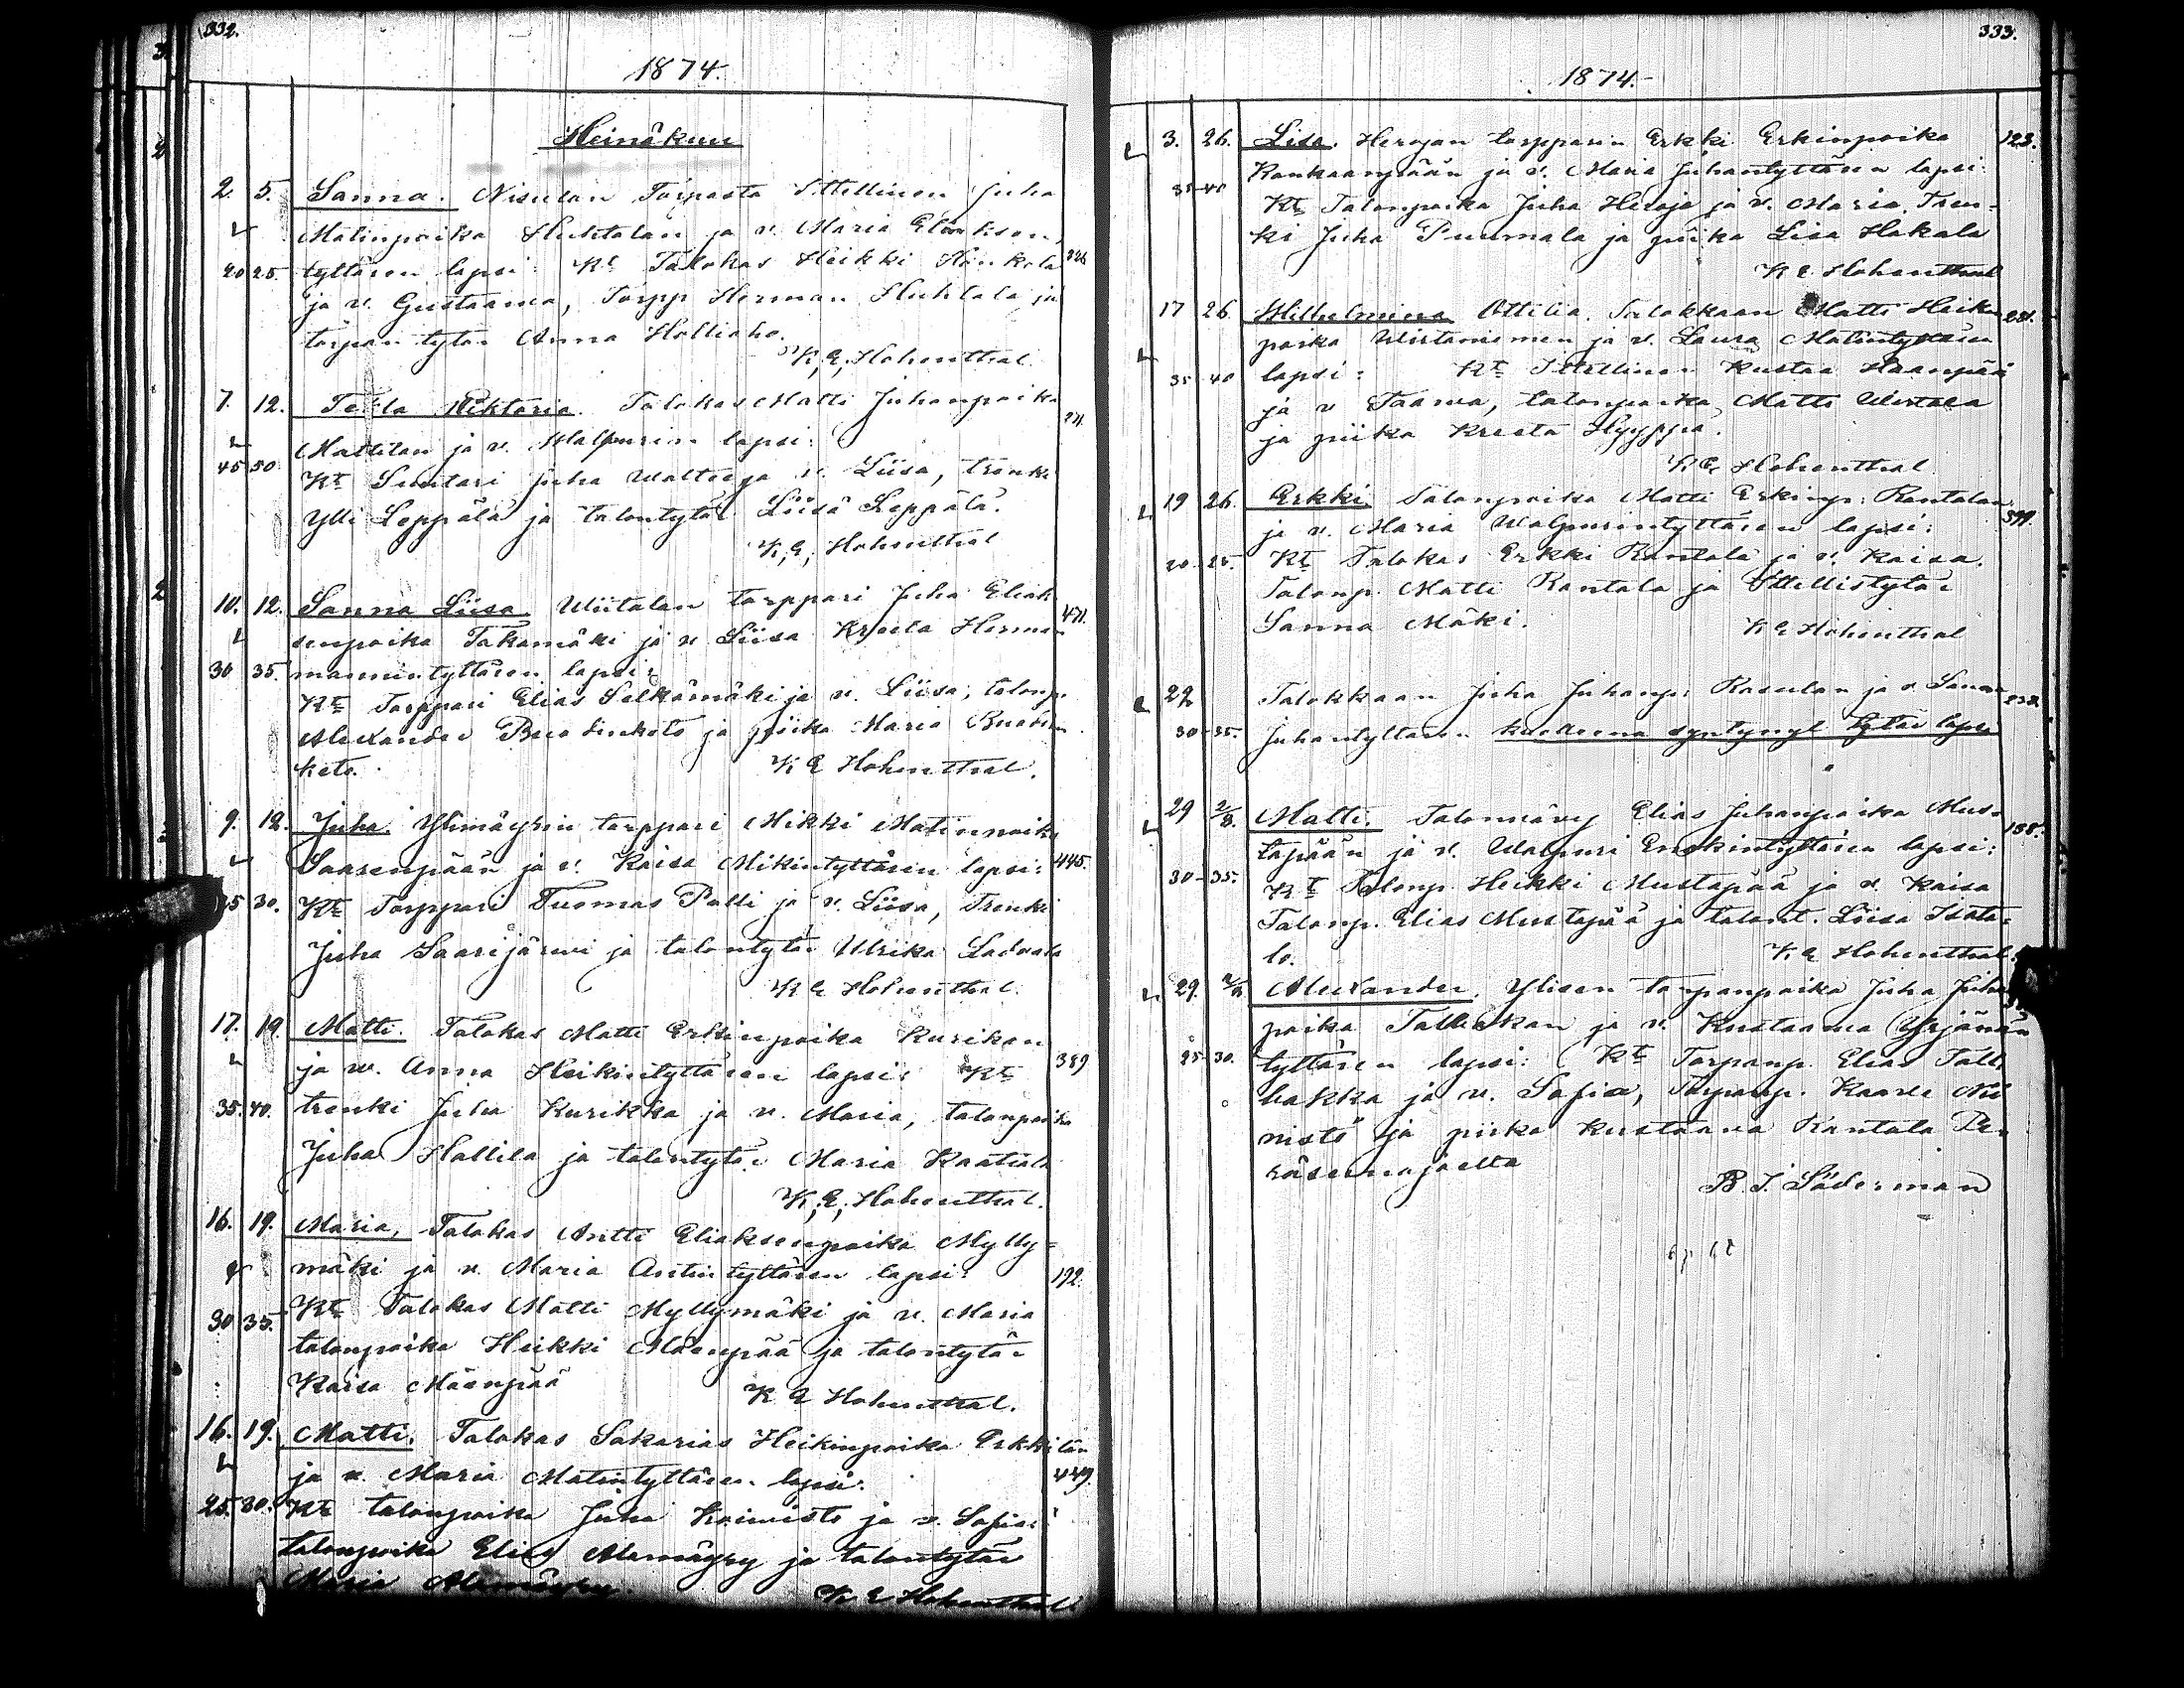 332.
1874.
Heinäkuu
2. 5. Sanna. Nisulan Torpasta Itsellinen Juha
Matinpoika Huhtalan ja v. Maria Eliaksen
20 25 tyttären lapsi: Kt Talokas Heikki Könkola
ja v. Gustaava, Torpp Herman Huhtala ja
torpan tytär Anna Holliaho.
K. E. Hohenthal
7. 12. Tekla Wiktoria. Talokas Matti Juhanpoika
Mattilan ja v. Walpurin lapsi:
45 50 Kt Suutari Juha Waltee ja v. Liisa, trenki
Ylli Leppälä ja talontytär Liisa Leppälä.
K. E. Hohenthal
10. 12. Sanna Liisa Wiitalan torppari Juha Eliak 471.
senpoika Takamäki ja v Liisa Kreeta Herman
30 35. mannintyttären lapsi:
Kt Torppari Elias Selkämäki ja v. Liisa, talonp.
Alexander ja piika Maria
keto. K E Hohenthal.
9. 12. Juha. Ylimäyryn torppari Mikki Matinpoika
Saasenpään ja v. Kaisa Mikintyttären lapsi: 445.
25 30. Kt Torppari Tuomas Palli ja v. Liisa, Trenki
Juha Saarijärwi ja talontytär Ulrika
K E Hohenthal.
17. 19. Matti. Talokas Matti Erkinpoika Kurikan
ja w. Anna Heikintyttären lapsi: Kt 389
35. 40. trenki Juha Kurikka ja v. Maria, talonpoika
Juha Hallila ja talontytär Maria Kaatiala
K. E. Hohenthal.
16. 19. Maria, Talokas Antti Eliaksenpoika Mylly-
mäki ja v. Maria Antintyttären lapsi: 192.
30 35. Kt Talokas Matti Myllymäki ja v. Maria
talonpoika Heikki Mäenpää ja talontytär
Kaisa Mäenpää K E Hohenthal.
16. 19. Matti. Talokas Sakarias Heikinpoika Erkkilän
ja v. Maria Matintyttären lapsi: 449.
25. 30. Kt talonpoika Juha Koiwisto ja v. Sofia:
talonpoika Elias Alamäyry ja talontytär
Maria Alamäyry. K E Hohenthal.
333.
1874.
3. 26. Lisa. Herojan torpparin Erkki Erkinpoika 123.
Kankaanpään ja v. Maria Juhantyttären lapsi:
35-40 Kt Talonpoika Juha Heroja ja v. Maria. Tren-
ki Juha Puumala ja piika Lisa Hakala
K E Hohenthal
17 26. Wilhelmina Ottilia. Talokkaan Matti Heikin
poika Wirtaniemen ja v. Laura Matintyttären
35 40 lapsi: Kt Itsellinen Kustaa Haanpää
ja v Taawa, talonpoika Matti Wirtala
ja piika Kreeta Hyyppä.
K E Hohenthal
19 26. Erkki Talonpoika Matti Erkinp: Rantalan
ja v. Maria Walpurintyttären lapsi: 399.
20-25. Kt Talokas Erkki Rantala ja v. Kaisa.
Talonp. Matti Rantala ja Itsellistytär
Sanna Mäki. K E Hohenthal
22 Talokkaan Juha Juhanp: Rasulan ja v. Sanna 232.
30-35. Juhantyttären kuolleena syntynyt tytär lapsi
29 2/8. Matti. Talonväwy Elias Juhanpoika Mus-
tapään ja v. Walpuri Erkintyttären lapsi: 158.
30-35. Kt Talonp. Heikki Mustapää ja v. Kaisa
Talonp. Elias Mustapää ja talont. Liisa Isota-
lo. K E Hohenthal.
29. 2/8 Alexander. Ylisen torpanpoika Juha Juhan
poika Tallbakan ja v. Kustaawa Yrjänän
25-30. tyttären lapsi: Kt Torpanp. Elias Tall
bakka ja v. Sofia, Torpanp. Kaarle Nii
nistö ja piika Kustaava Rantala Pe-
räseinäjoelta B. J. Söderman